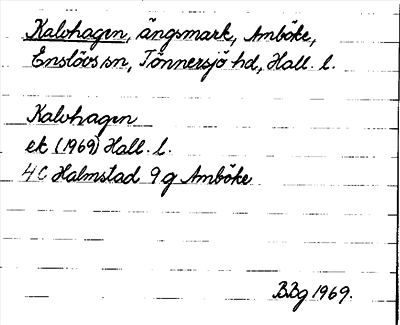 Kalvhagen, ängsmark, Amböke,
Enslövs sn, Tönnersjö hd, Hall. l.
Kalvhagen
ek (1969) Hall. l.
4C Halmstad 9g Amböke
BBg 1969.